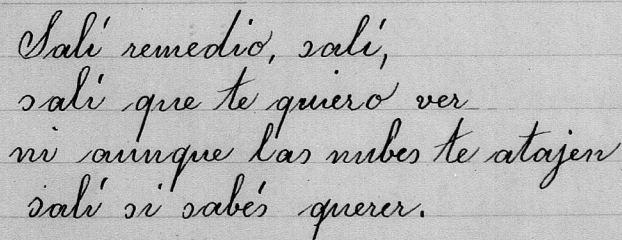 Salí remedio, salí,
salí que te quiero ver
ni aunque las nubes te atajen
salí si sabés querer.